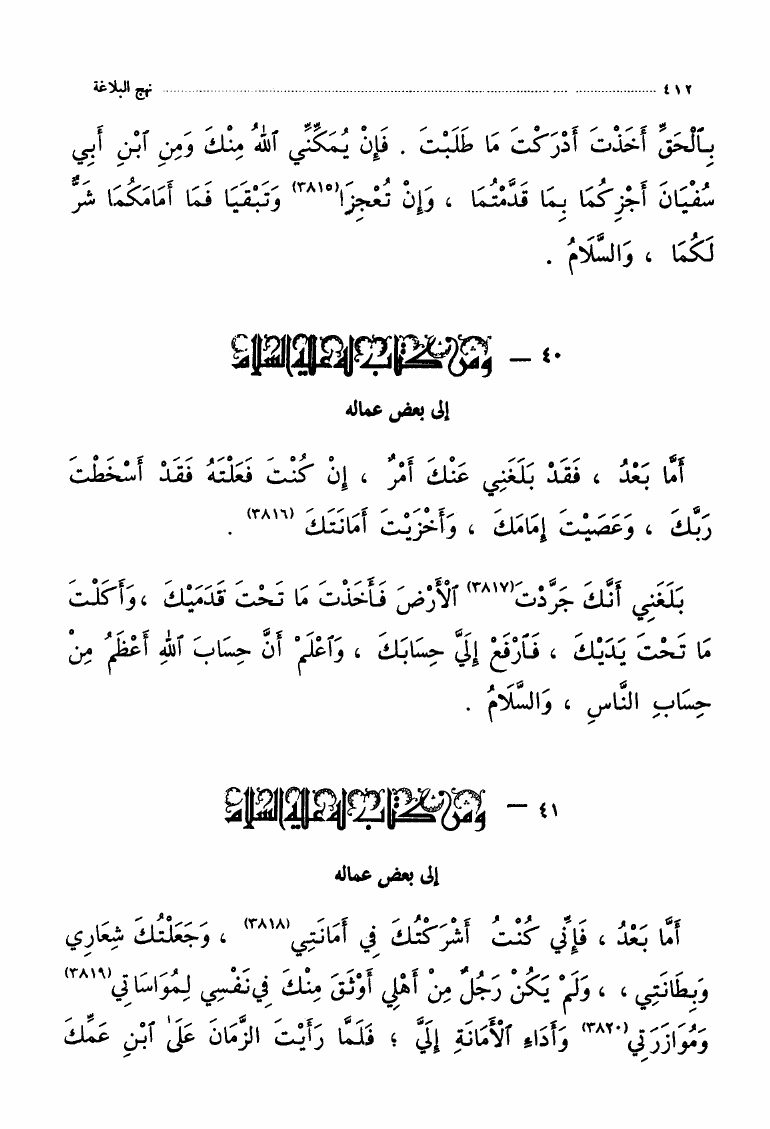 ٤١٢ ........ نهج البلاغة
بِٱلْحَقِّ أَخَذْتَ أَدْرَكْتَ مَا طَلَبْتَ . فَإِنْ يُمَكِّنِّي ٱللهُ مِنْكَ وَمِنِ ٱبْنِ أَبِي
سُفْيَانَ أَجْزِكُمَا بِمَا قَدَّمْتُمَا ، وَإِنْ تُعْجِزَا(٣٨١٥) وَتَبْقَيَا فَمَا أَمَامَكُمَا شَرٌّ
لَكُمَا ، وَالسَّلَامُ .
٤٠ – ومن كتاب له عليه السلام
إلى بعض عماله
أَمَّا بَعْدُ ، فَقَدْ بَلَغَنِي عَنْكَ أَمْرٌ ، إِنْ كُنْتَ فَعَلْتَهُ فَقَدْ أَسْخَطْتَ
رَبَّكَ ، وَعَصَيْتَ إِمَامَكَ ، وَأَخْزَيْتَ أَمَانَتَكَ (٣٨١٦) .
بَلَغَنِي أَنَّكَ جَرَّدْتَ(٣٨١٧) ٱلْأَرْضَ فَأَخَذْتَ مَا تَحْتَ قَدَمَيْكَ ، وَأَكَلْتَ
مَا تَحْتَ يَدَيْكَ ، فَٱرْفَعْ إِلَيَّ حِسَابَكَ ، وَٱعْلَمْ أَنَّ حِسَابَ ٱللهِ أَعْظَمُ مِنْ
حِسَابِ النَّاسِ ، وَالسَّلَامُ .
٤١ – ومن كتاب له عليه السلام
إلى بعض عماله
أَمَّا بَعْدُ ، فَإِنِّي كُنْتُ أَشْرَكْتُكَ فِي أَمَانَتِي(٣٨١٨) ، وَجَعَلْتُكَ شِعَارِي
وَبِطَانَتِي ، ، وَلَمْ يَكُنْ رَجُلٌ مِنْ أَهْلِي أَوْثَقَ مِنْكَ فِي نَفْسِي لِمُوَاسَاتِي(٣٨١٩)
وَمُوَازَرَتِي(٣٨٢٠) وَأَدَاءِ ٱلْأَمَانَةِ إِلَيَّ ؛ فَلَمَّا رَأَيْتَ الزَّمَانَ عَلَىٰ ٱبْنِ عَمِّكَ